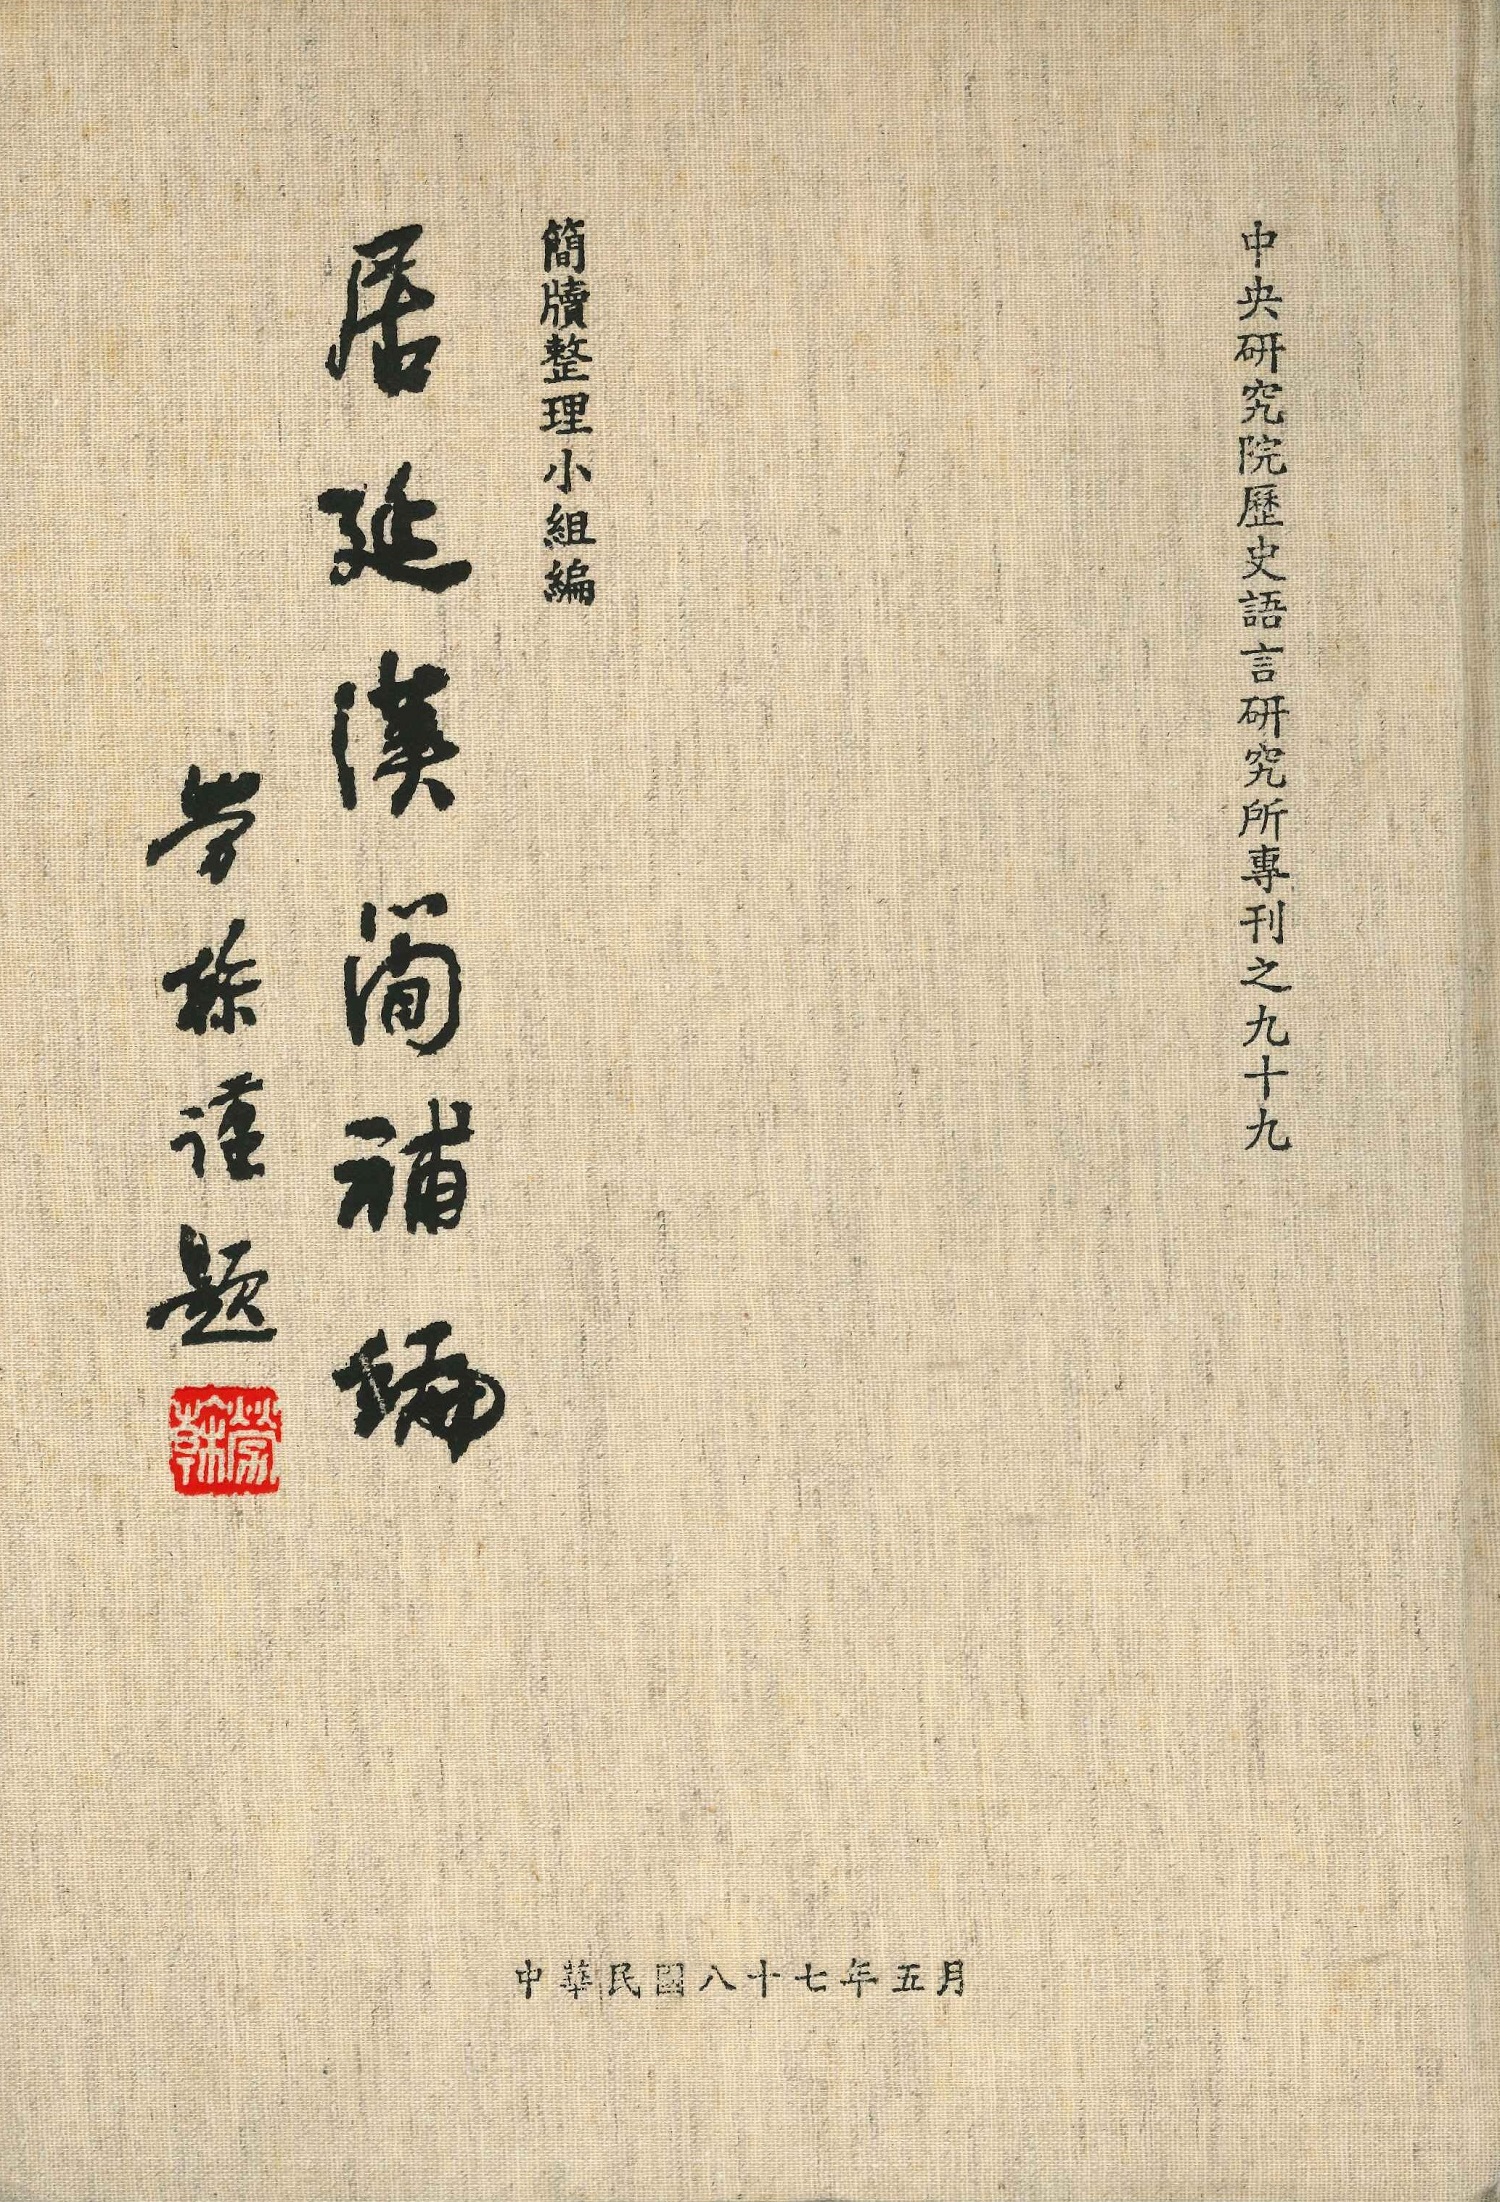 中央研究院歷史語言研究所專刊之九十九
簡牘整理小組編
居延漢簡補編
勞榦謹題
勞榦
中華民國八十七年五月